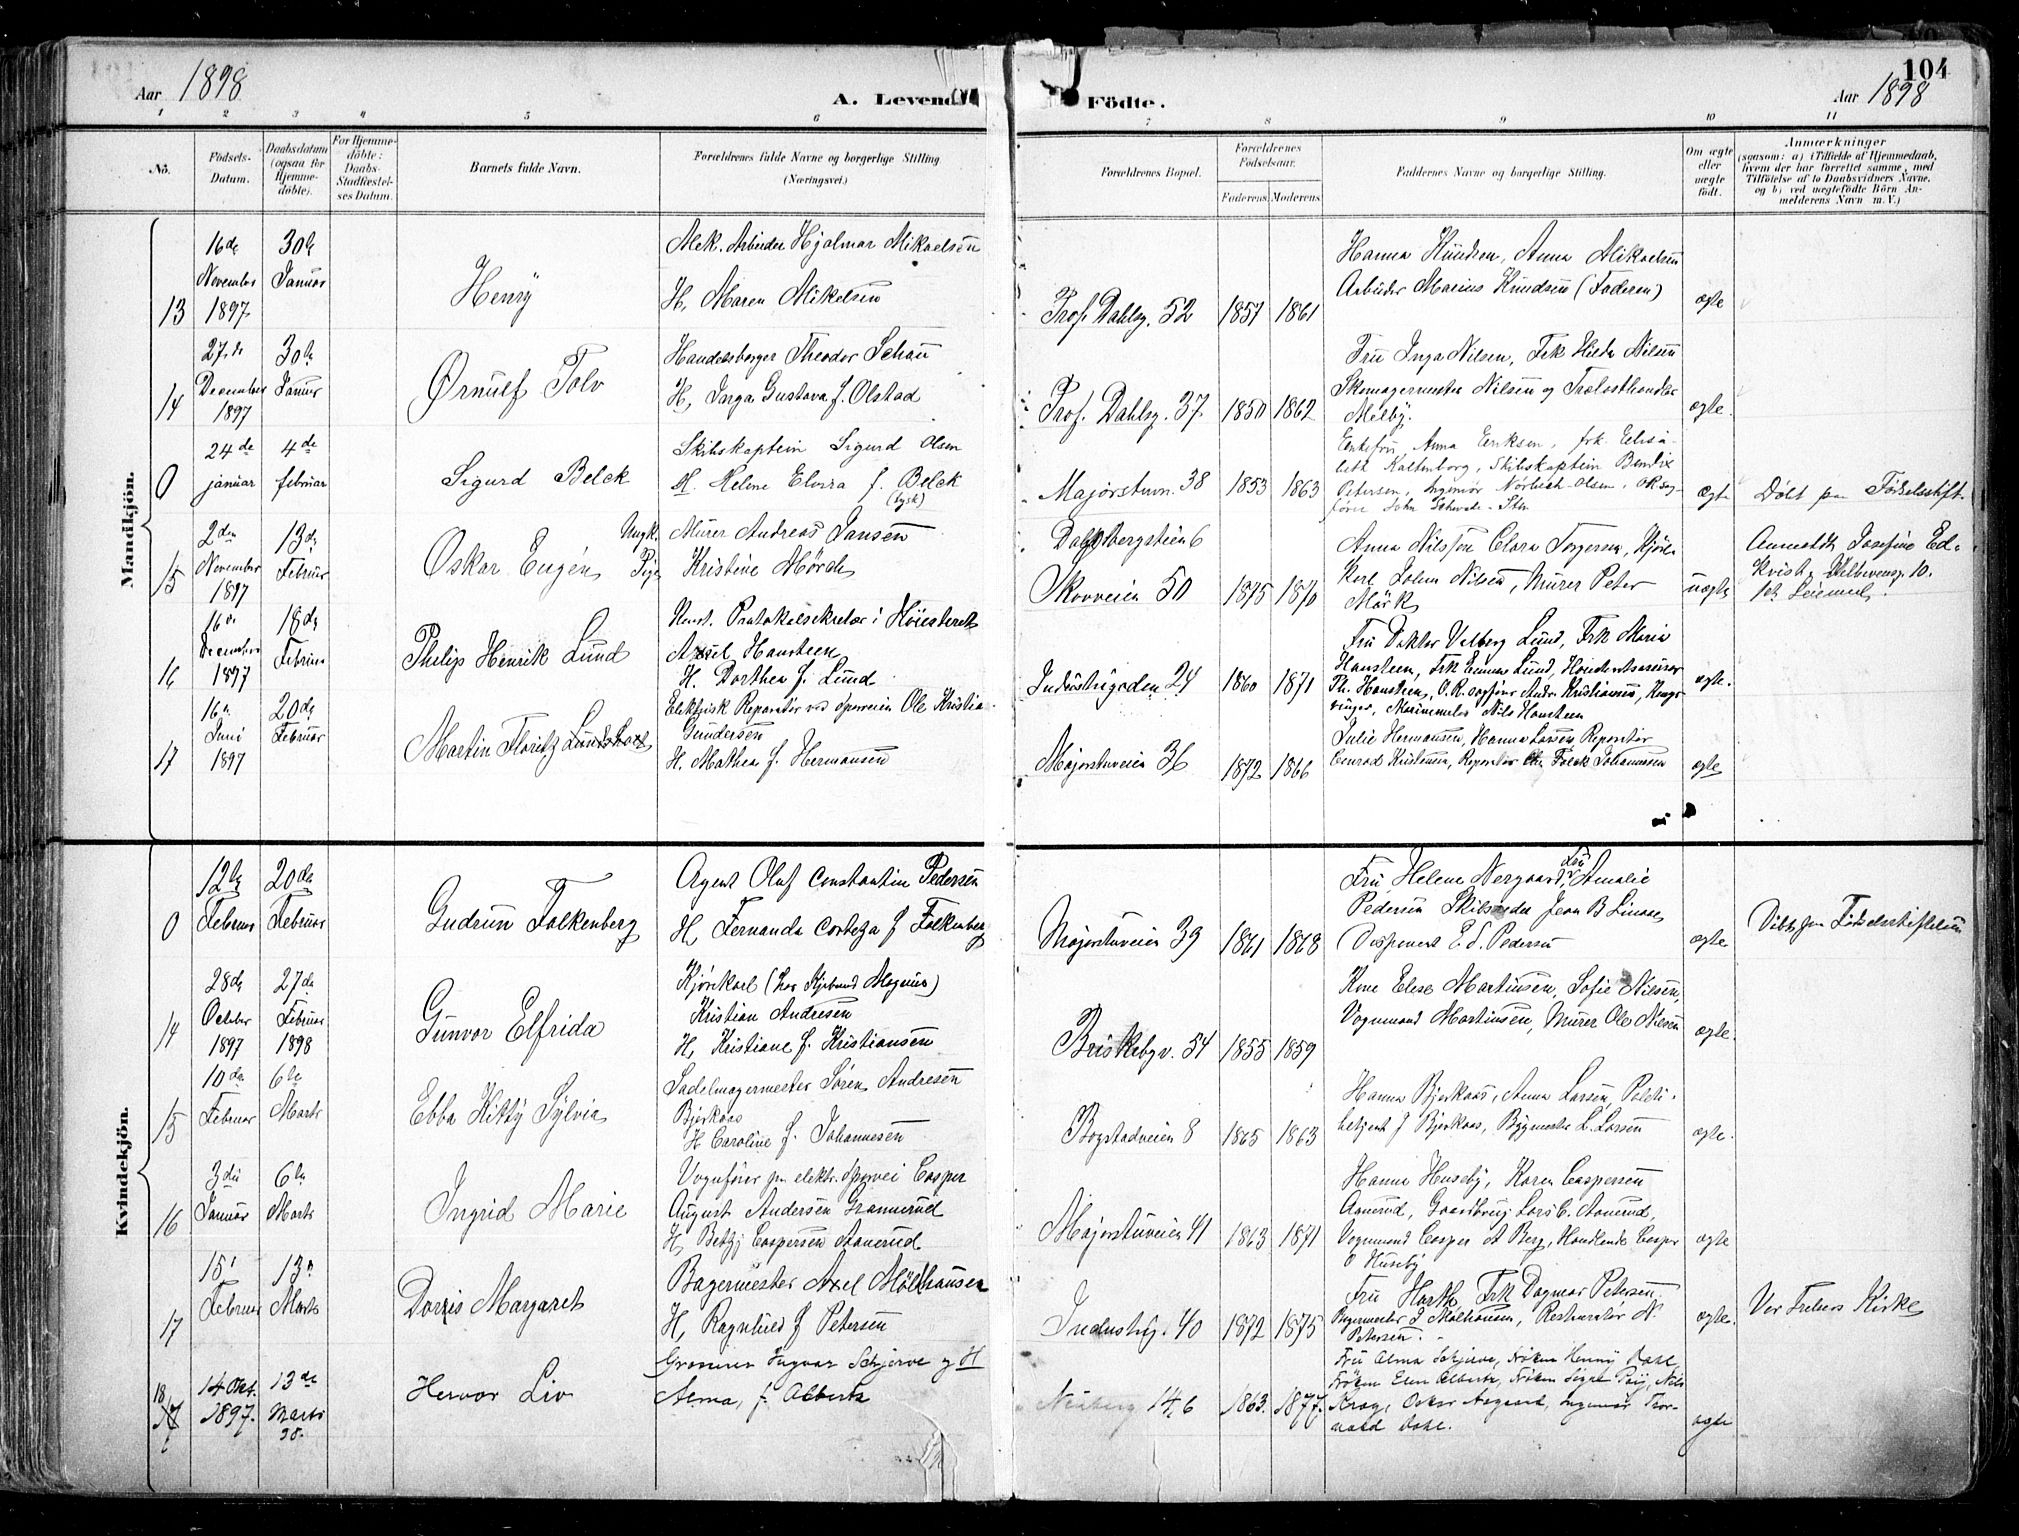 104
Aar 1898
A. Levende Födte.
Aar 1898
1 2 3 4 5 6 7 8 9 10 11
No.
Födsels-Datum.
Daabsdatum (ogsaa for Hjemme-döbte).
For Hjemme-döbte: Daabs-Stadfæstel-ses Datum.
Barnets fulde Navn.
Forældrenes fulde Navne og borgerlige Stilling (Næringsvei.)
Forældrenes Bopæl.
Forældrenes Födselsaar.
Faderens. Moderens.
Faddernes Navne og borgerlige Stilling.
Om ægte eller uægte födt.
Anmærkninger
(saasom: a) i Tilfælde af Hjemmedaab, hvem der har forrettet samme, med Tilföielse af to Daabsvidners Navne, og b) ved uægtefödte Börn Anmelderens Navn m. V.)
Mandkjön.
13 16de November 1897 30te Januar
Henrÿ
Mek. Arbeider Hjalmar Mikaelsen
H, Maren Mikelsen
Prof. Dahlsg. 52 1857 1861
Hanna Knudsen, Anna Mikaelsen
Arbeider Marius Knudsen (Faderen)
ægte
14 27de December 1897 30te Januar
Ørnulf Tolv
Handelsborger Theodor Schau
H, Inga Gustava f. Olstad
Prof. Dahlsg. 37. 1850 1862
Fru Inga Nilsen, Frk Hilda Nilsen
Skomagermester Nilsen og Trælasthandler
Melby.
ægte.
0 24de januar 4de februar
Sigurd Belck
Skibskaptein Sigurd Olsen
H. Helene Elvira f. Belck
(tysk)
Majorstuv. 38 1853 1863
Enkefru Anna Eriksen, frk. Elisa-
beth Kaltenborg, Skibskaptein Bendix
Petersen, Ingeniør Nørbech-Olsen, O.R.sag-
fører John
ægte
Døbt paa Fødselsstift.
15 2den November 1897 13de Februar
Oskar Eugén
Ungk. Murer Andreas Jansen
Pige Kristine Mørch
Dalsbergstien 6
Skovveien 50 1875 1870
Anna Nilsen Clara Torgersen, Kjøre-
karl Johan Nilsen, Murer Peter
Mörk
uægte
Anmeldt Josefine Ed-
kvist,
16 16de December 1897 18de Februar
Philip Henrik Lund
Const. Protokolsekretær i Høiesteret
Axel Hansteen
H. Dorthea f. Lund
Industrigaden 24 1860 1871
Fru Doktor Valborg Lund, Frk Maria
Hansteen, Frk Emma Lund, Høiesteretsassessor
Th. Hansteen, O.R.sagfører Andr. Kristiansen, Kongs-
vinger, Nils Hansteen
ægte.
17 16de Juni 1897 20de Februar
Martin Floritz
Elektrisk Reparatør ved Sporveien Ole Kristia
Gundersen
H. Mathea f. Hermansen
Majorstuveien 36 1872 1866
Julie Hermansen, Hanna Larsen, Reparatør
Conrad Kristensen, Reparatør Fredk Johannesen
ægte
Kvindekjön.
0 12te Februar 20de Februar
Gudrun Falkenberg
Agent Oluf Constantin Pedersen
H, Fernanda Corteza f Falkenberg
Majorstuveien 39 1861 1868
Fru Helene Nergaard, Fru Amalie
Pedersen Skibsreder Jean B Linaae
Disponent E S. Pedersen
ægte
Døbt paa Fødselsstiftelsen
14 28de October 1897 27de Februar 1898
Gunvor Elfrida
Kjørekarl (hos Kjøbmand Magnus)
Kristian Andresen
H, Kristiane f. Kristiansen
Briskebyv. 54 1855 1859
Kone Elise Martinsen, Sofie Nilsen,
Vognmand Martinsen, Murer Ole Nilsen
ægte.
15 10de Februar 6te Marts
Ebba Kitty Sÿlvia
Sadelmagermester Søren Andresen
Bjerkaas
H Caroline f. Johannesen
Bogstadveien 8 1865 1863
Hanna Bjerkaas, Anna Larsen, Politi-
betjent J Bjerkaas, Bygmester L. Larsen
ægte.
16 3die Januar 6te Marts
Ingrid Marie
Vognfører paa elektr. Sporvei Casper
August Andersen Grannerud
H, Betzy Caspersen Aanerud
Majorstuveien 41 1863 1871
Hanna Huseby, Karen Caspersen
Aanerud, Gaardbrug Lars C. Aanerud,
Vognmand Casper A Berg, Handlende Casper
O Huseby
ægte
17 15' Februar 13n Marts
Dorris Margaret
Bagermester Axel Mölhausen
H, Ragnhild f Petersen
Industrig. 40 1872 1875
Fru Harth, Frk Dagmar Petersen
Bagermester J Mølhausen, Restauratør N.
Petersen.
ægte.
Vor Frelsers Kirke
18 14 Okt. 1897. 13de Marts 98.
Hervor Liv
Grosserer Ingvar Schjerve og H
Alma, f. Alberts
Neuberg 14, 6 1863. 1877.
Fru Alma Schjerve, Frøken Henny Dahl,
Frøken Elen Alberts, Frøken Signe Roij, Nils
Krag, Oskar Aagaard, Ingeniør Thor-
vald Dahl.
ægte